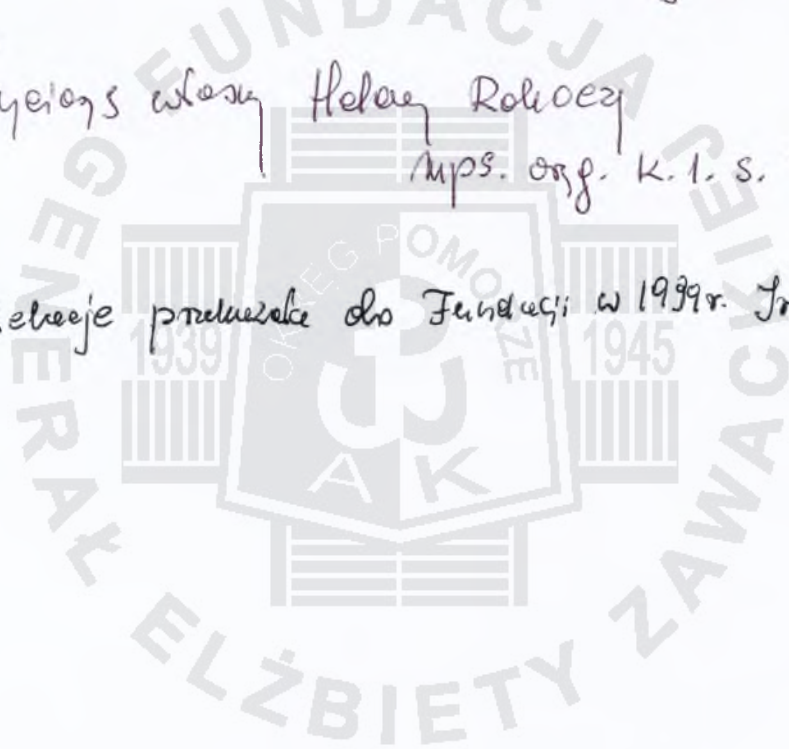 własny Heleny Rakoczy
mps. org. k. 1. s.
przekazała do Fundacji w 1999r.
FUNDACJA
GENERAŁ ELŻBIETY ZAWACKIEJ
OKRĘG POMORZE
1939
1945
AK